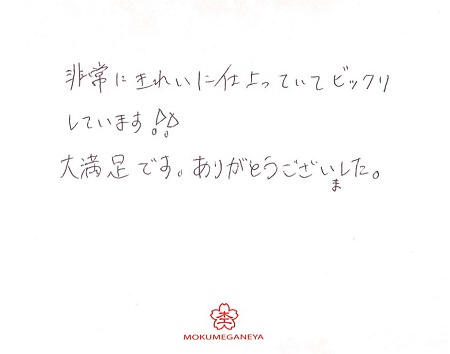 非常にきれいに仕上っていてビックリ
しています!!
大満足です。ありがとうございました。
杢
MOKUMEGANEYA